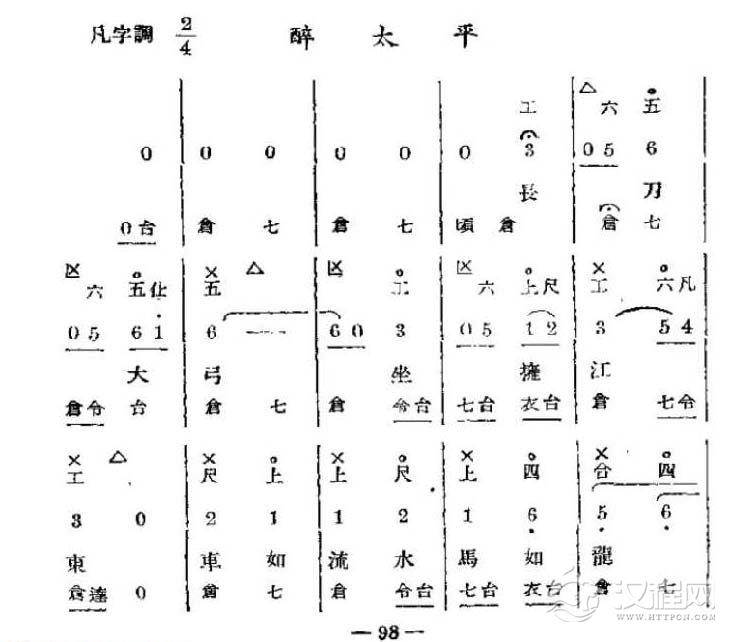 凡字調 2/4 醉太平
△ 。
工 六 五
0 | 0 0 | 0 0 | 0 3 | 0 5 6
長 刀
0 台 | 倉 七 | 倉 七 | 頃 倉 | 倉 七
。 × △ 。 。 × 。
六 五 仩 五 工 六 上 尺 工 六 凡
0 5 6 1 | 6 — | 6 0 3 | 0 5 1 2 | 3 5 4
大 弓 坐 擁 江
倉 令 台 | 倉 七 | 倉 令 台 | 七 台 衣 台 | 倉 七 令
× △ × 。 × 。 × 。 × 。
工 尺 上 上 尺 上 四 合 四
3 0 | 2 1 | 1 2 | 1 6 | 5 6
東 車 如 流 水 馬 如 龍
倉 0 | 倉 七 | 倉 令 台 | 七 台 衣 台 | 倉 七
— 98 —
汉程网
HTTPCN.COM